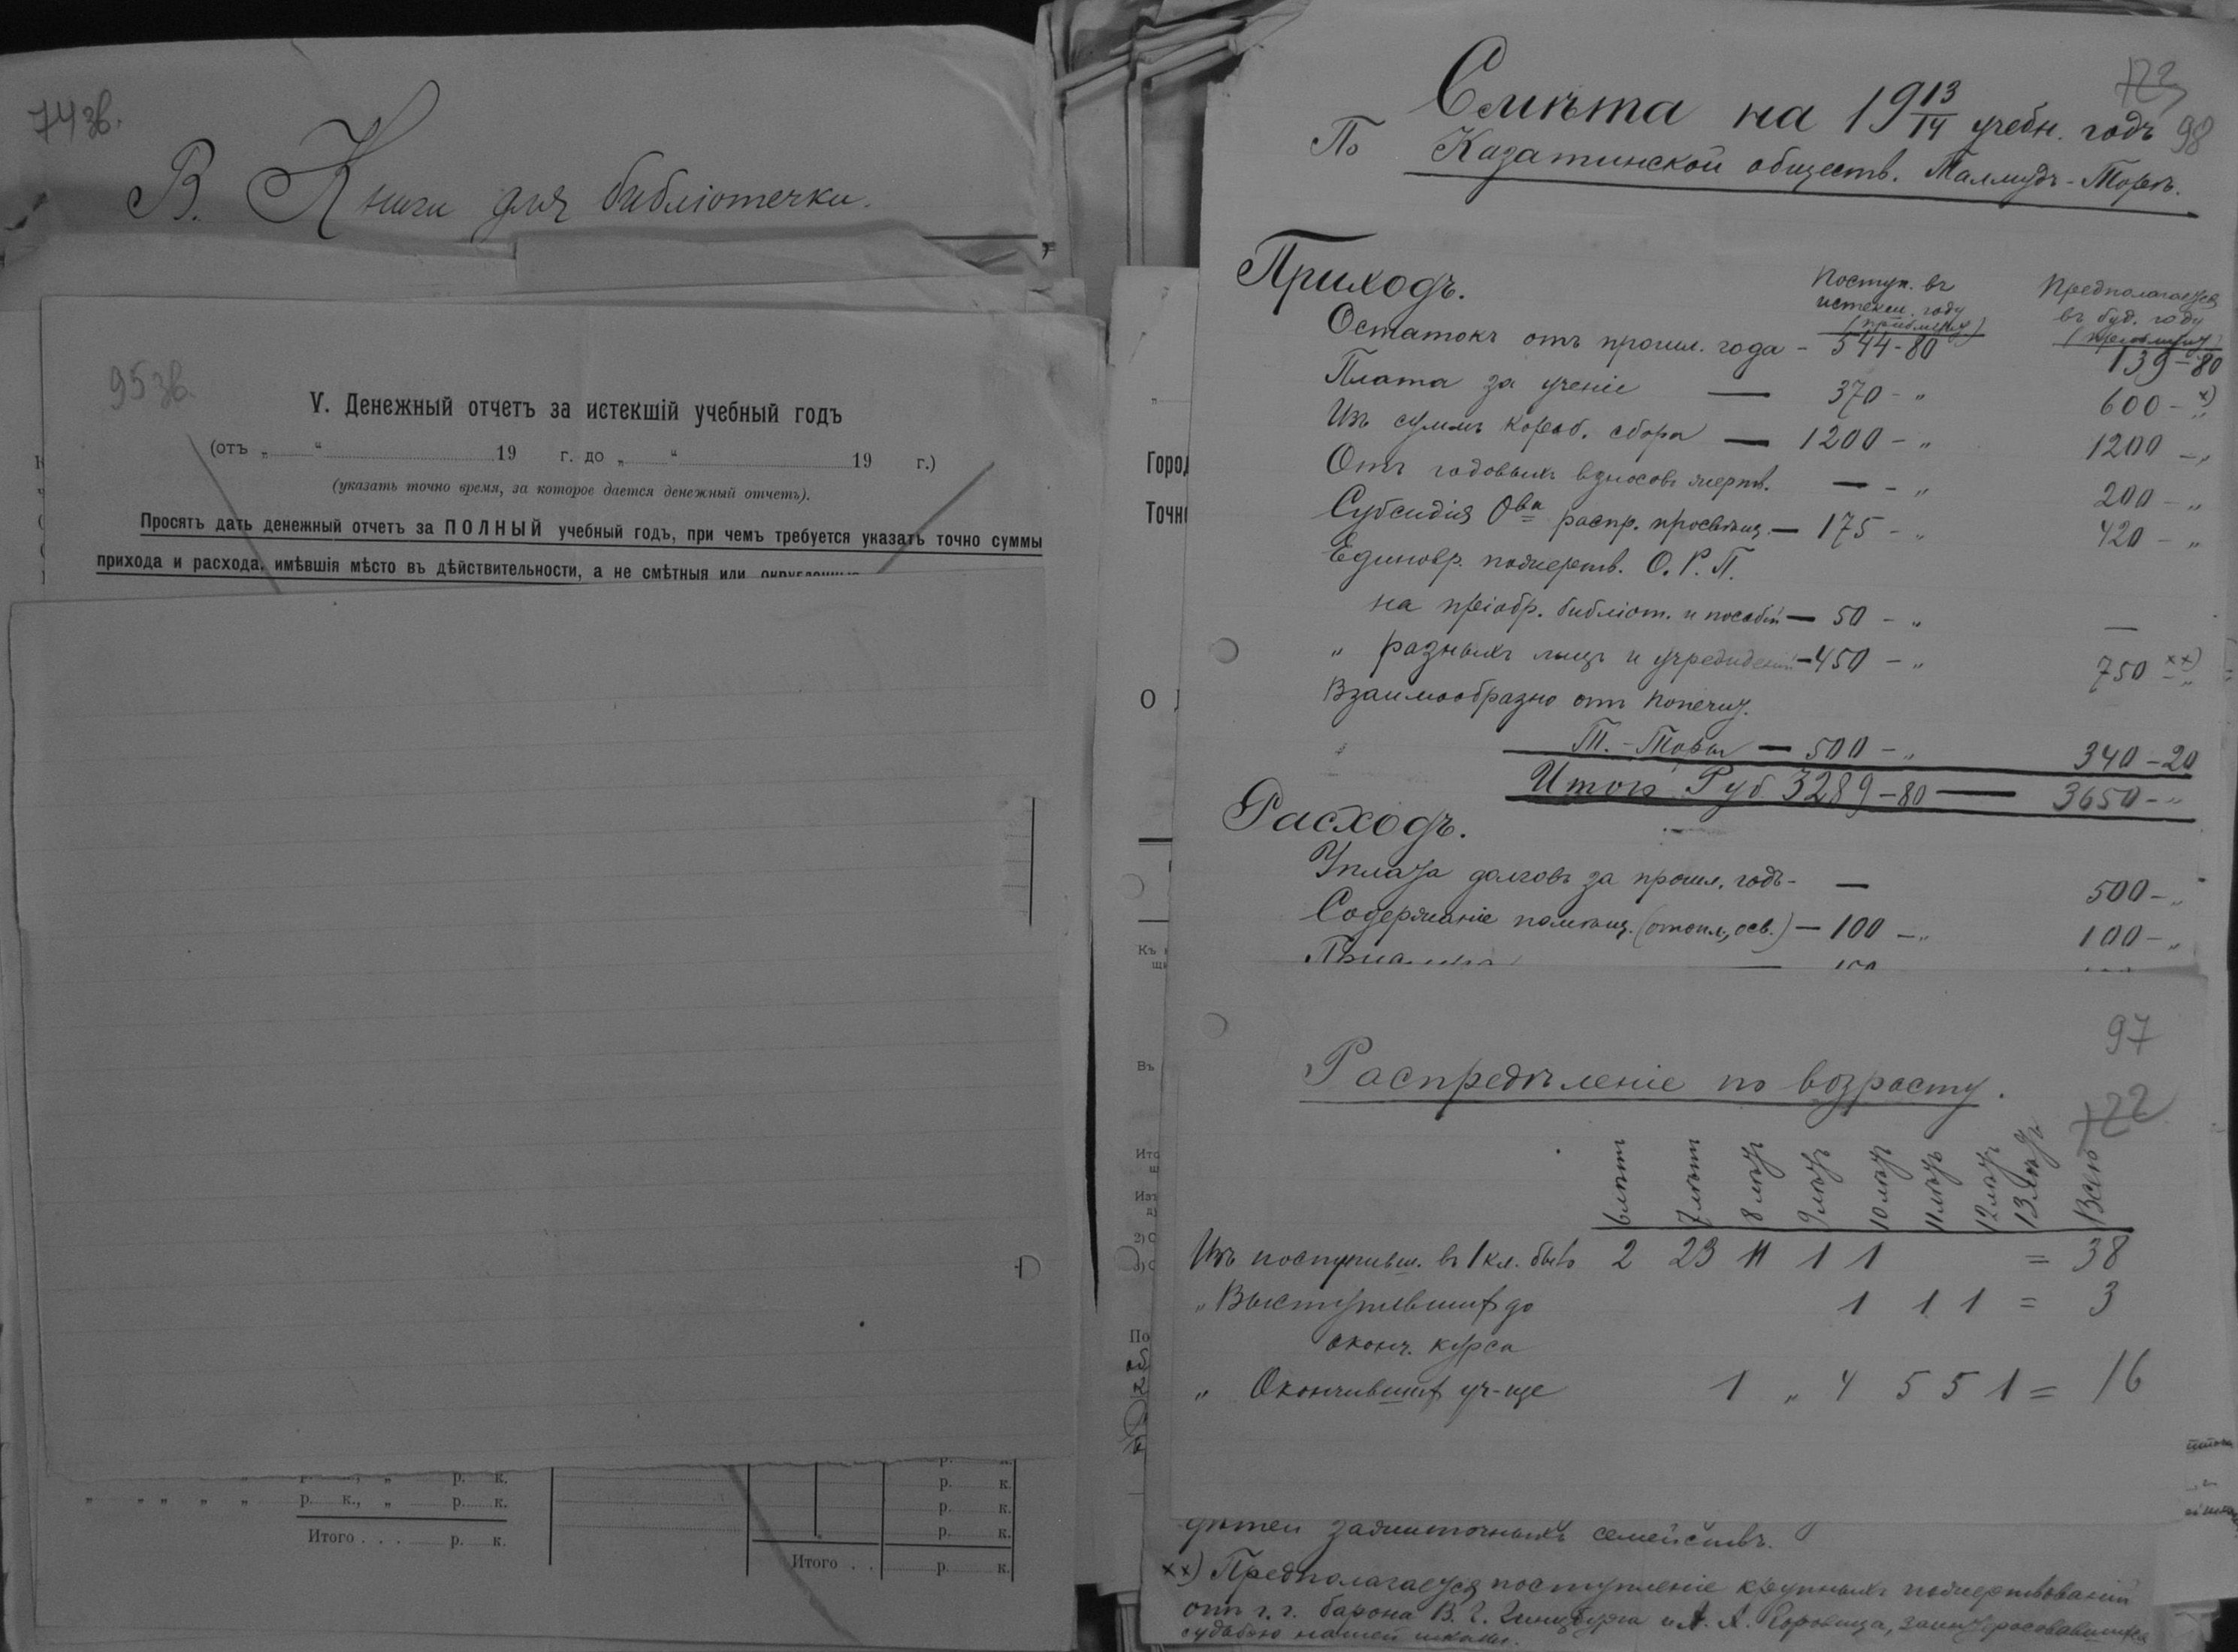 74 зв.
В. Книги для библіотечки.
95 зв.
V. Денежный отчетъ за истекшій учебный годъ
(отъ „ “ 19 г. до „ “ 19 г.)
(указать точно время, за которое дается денежный отчетъ).
Просятъ дать денежный отчетъ за ПОЛНЫЙ учебный годъ, при чемъ требуется указать точно суммы
прихода и расхода, имѣвшія мѣсто въ дѣйствительности, а не смѣтныя или
р. к.
„ „ „ „ „ р. к., „ р. к.
Итого . . . р. к.
р. к.
р. к.
р. к.
Итого . . р. к.
Город
Точн
О
Къ
Въ
Ито
Изъ
По
122
98
Смѣта на 19 13/14 учебн. годъ
По Казатинской обществ. Талмудъ-Торѣ.
Приходъ.
Поступ. въ истекш. году
Предполагается въ буд. году
Остатокъ отъ прошл. года - 544-80 139-80
Плата за ученіе — 370 - „ 600 - „ x)
Изъ суммъ короб. сбора — 1200 - „ 1200 - „
Отъ годовыхъ взносовъ жертв. — - „ 200 - „
Субсидія О-ва распр. просвѣщ. — 175 - „ 420 - „
Единовр. пожертв. О. Р. П.
на пріобр. библіот. и пособій — 50 - „ —
„ разныхъ лицъ и учрежденій - 450 - „ 750 - „ xx)
Взаимообразно отъ попечит.
Т.-Торы — 500 - „ 340-20
Итого Руб 3289-80 — 3650 - „
Расходъ.
Уплата долговъ за прошл. годъ - — 500 - „
Содержаніе помѣщ. (отопл., осв.) — 100 - „ 100 - „
97
Распредѣленіе по возрасту.
122
6 лѣтъ 7 лѣтъ 8 лѣтъ 9 лѣтъ 10 лѣтъ 11 лѣтъ 12 лѣтъ 13 лѣтъ Всего
Изъ поступивш. въ 1 кл. было 2 23 11 1 1 = 38
„ Выступившихъ до 1 1 1 = 3
оконч. курса
„ Окончившихъ уч-ще 1 „ 4 5 5 1 = 16
дѣтей зажиточныхъ семействъ.
xx) Предполагается поступленіе крупныхъ пожертвованій
отъ г.г. барона В. Г. Гинцбурга и А. А. Горовица, заинтересовавшихся
судьбою нашей школы.